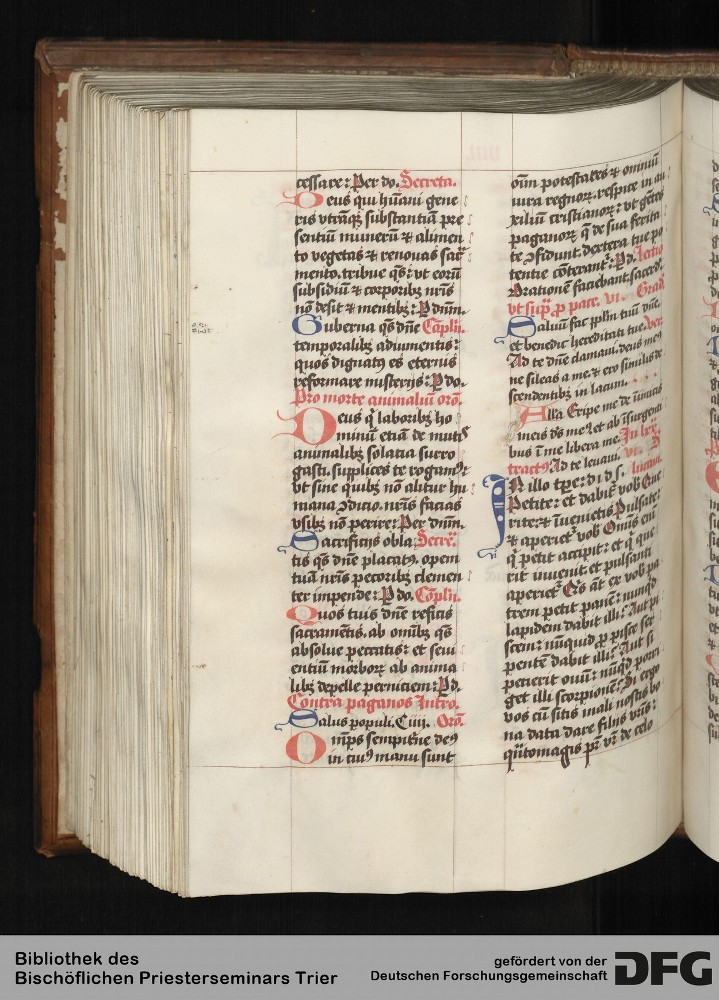 cessare: Per do. Secreta.
Deus qui hūani gene
ris vtrāqꝫ substantiā pre
sentiū munerū ⁊ alimen
to vegetas ⁊ renouas sac̄
mento. tribue qs̄: vt eorū
subsidiū ⁊ corporibꝫ nr̄is
nō desit ⁊ mentibꝫ: P dnīm.
Guberna qs̄ dn̄e Cōplīn.
temporalibꝫ adiumentis:
quos dignatꝰ es eternis
reformare misterijs: P do.
Pro morte animaliū orō.
Deus q' laboribꝫ ho
minū etiā de mutꝭ
animalibꝫ solatia surro
gasti. supplices te rogamꝰ:
vt sine quibꝫ nō alitur hu
mana ꝯdicio. nr̄is facias
vsibꝫ nō perire: Per dnīm.
Sacrificijs obla Secre.
tis qs̄ dn̄e placatꝰ. opem
tuā nr̄is pecoribꝫ clemen
ter impende: P do. Cōplīn.
Quos tuis dn̄e reficis
sacramētis. ab omībꝫ qs̄
absolue peccatis: et seui
entiū morboꝝ ab anima
libꝫ depelle perniciem: P d.
Contra paganos Intro.
Salus populi. C iiij. Orō.
Omp̄s sempit'ne deꝰ
in cuiꝰ manu sunt
oīm potestates ⁊ omniū
iura regnoꝝ. respice in au
xiliū cristianoꝝ: vt gētes
paganoꝝ q̄ de sua ferita
te ꝯfidunt. dextera tue po
tentie cōterant': P d. Lectio
Orationem faciebant sacerd.
vt supͣ. ꝓ pace. vi. Grad.
Saluū fac pplm̄ tuū dn̄e.
et benedic hereditati tue. Ver.
Ad te dn̄e clamaui. deus meꝰ
ne sileas a me. ⁊ ero similis de
scendentibꝫ in lacum.
Alla Eripe me de inimicis
meis ds̄ meꝰ. et ab īsurgenti
bus ī me libera me. In lxx.
tractꝰ. Ad te leuaui.
In illo tp̄re: d. i. d. s. lucam.
Petite: et dabit' vob̄ Que
rite: ⁊ īuenietis Pulsate:
⁊ aperiet' vob̄ Omīs enī
q' petit accipit: et q' que
rit inuenit et pulsanti
aperiet' Q̄s āt ex vob̄ pa
trem petit panē: nunqd
lapidem dabit illi: Aut pi
scem: nūquid ꝓ pisce ser
pentē dabit illi: Aut si
petierit ouū: nūqd porri
get illi scorpionē: Si ergo
vos cū sitis mali nostis bo
na data dare filijs vr̄is:
quātomagis pr̄ vr̄ de celo
Bibliothek des
Bischöflichen Priesterseminars Trier
gefördert von der
Deutschen Forschungsgemeinschaft
DFG